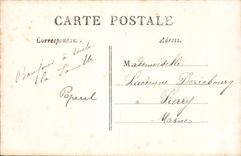 CARTE POSTALE
Correspondance
Adresse
Bonjour à toute
la famille
Mademoiselle
Lucienne
à
Pierry
Marne